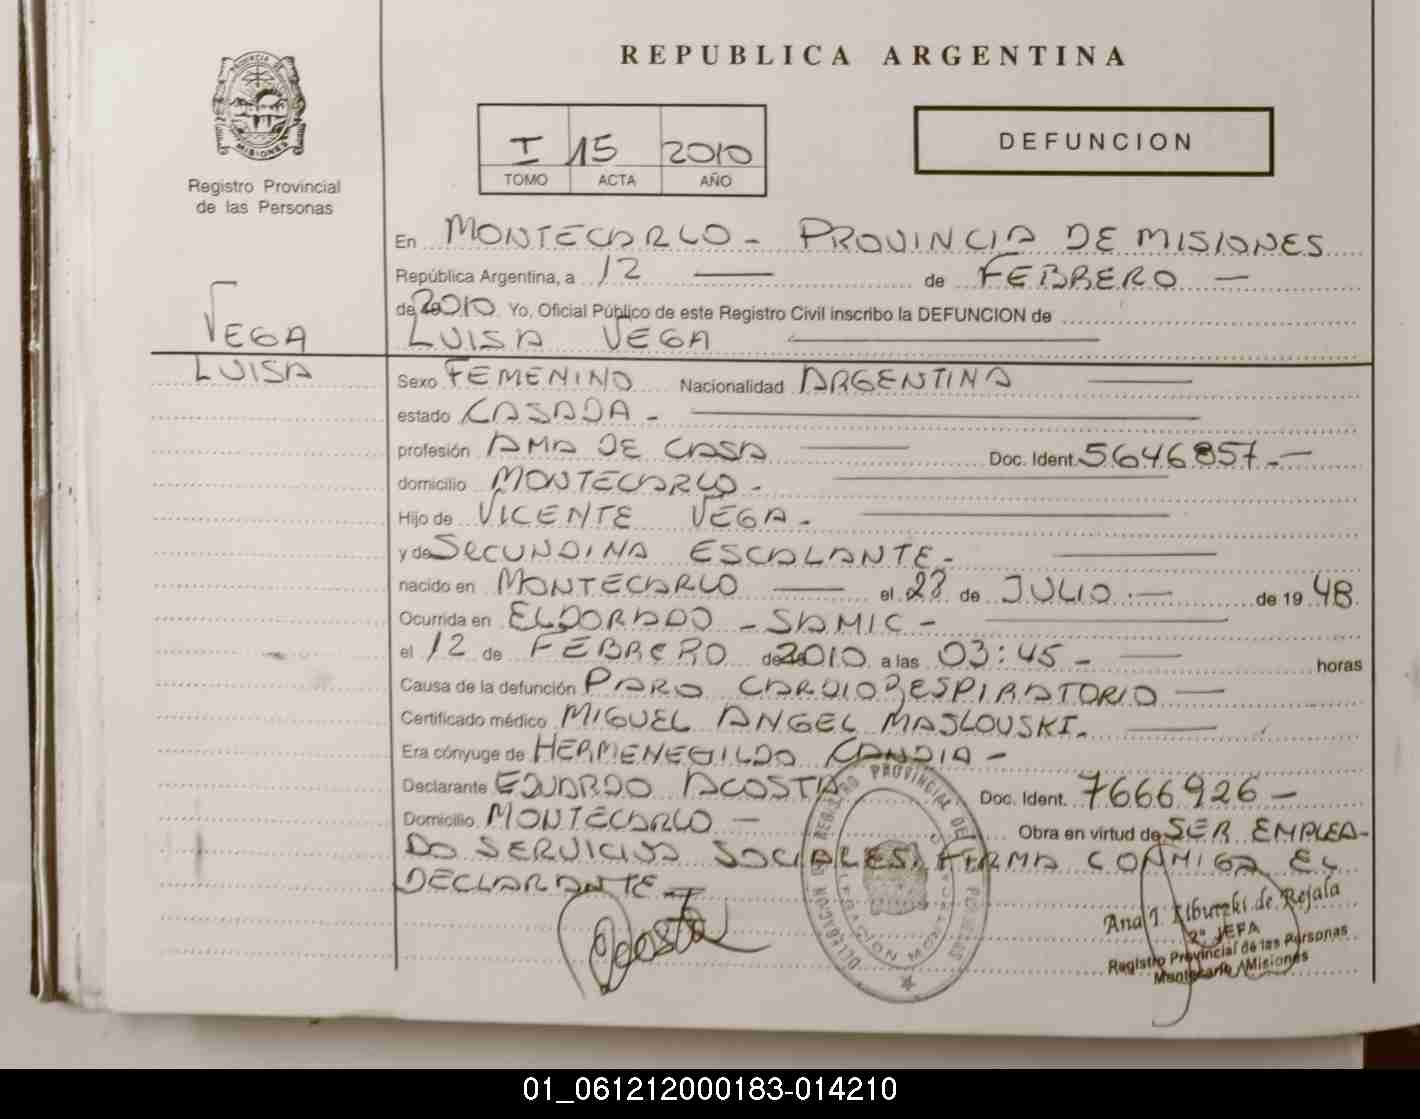 REPUBLICA ARGENTINA
PROVINCIA DE
MISIONES
Registro Provincial
de las Personas
I 15 2010
TOMO ACTA AÑO
DEFUNCION
En MONTECARLO - PROVINCIA DE MISIONES
República Argentina, a 12 de FEBRERO -
de 2010. Yo, Oficial Público de este Registro Civil inscribo la DEFUNCION de
VEGA LUISA VEGA
LUISA
Sexo FEMENINO Nacionalidad ARGENTINA
estado CASADA -
profesión AMA DE CASA Doc. Ident. 5646857.-
domicilio MONTECARLO -
Hijo de VICENTE VEGA -
y de SECUNDINA ESCALANTE -
nacido en MONTECARLO el de JULIO - de 19 48.
Ocurrida en ELDORADO - SAMIC -
el 12 de FEBRERO de 2010 a las 03:45 - horas
Causa de la defunción PARO CARDIORESPIRATORIO -
Certificado médico MIGUEL ANGEL MASLOUSKI.
Era cónyuge de HERMENEGILDO CANDIA -
Declarante EDUARDO ACOSTA Doc. Ident. 7666926 -
Domicilio MONTECARLO - Obra en virtud de SER EMPLEA-
DO SERVICIOS SOCIALES, FIRMA CONMIGO EL
DECLARANTE -
Acosta
REGISTRO PROVINCIAL DE LAS PERSONAS
DELEGACION
Ana I. de Rejala
2ª JEFA
Registro Provincial de las Personas
Montecarlo - Misiones
01_061212000183-014210